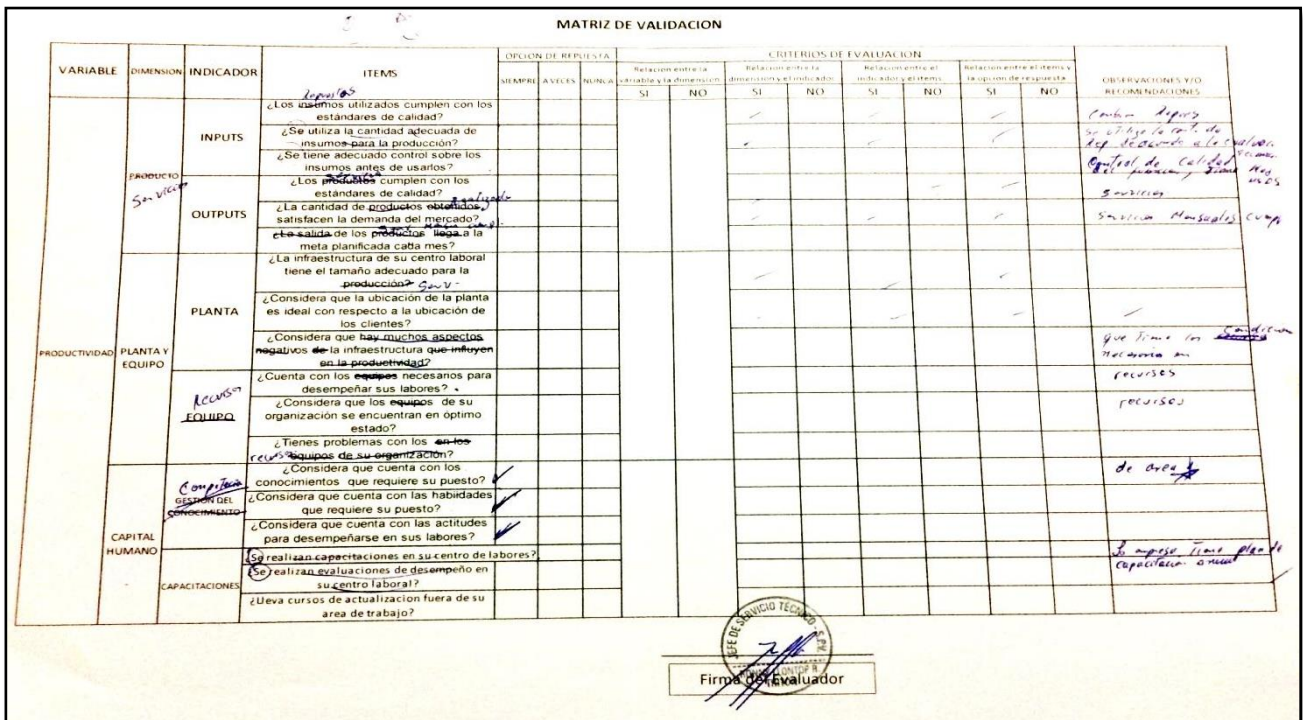 MATRIZ DE VALIDACION
VARIABLE
DIMENSION
INDICADOR
ITEMS
OPCION DE REPUESTA
SIEMPRE
A VECES
NUNCA
CRITERIOS DE EVALUACION
Relacion entre la
variable y la dimension
Relacion entre la
dimension y el indicador
Relacion entre el
indicador y el items
Relacion entre el items y
la opcion de respuesta
OBSERVACIONES Y/O
RECOMENDACIONES
SI NO SI NO SI NO SI NO
PRODUCTIVIDAD
PRODUCTO
Servicio
INPUTS
repuestos
¿Los insumos utilizados cumplen con los
estándares de calidad?
¿Se utiliza la cantidad adecuada de
insumos para la producción?
Se utilize la cant. de
¿Se tiene adecuado control sobre los
insumos antes de usarlos?
Control de Calidad
OUTPUTS
¿Los productos cumplen con los
estándares de calidad?
servicios
¿La cantidad de productos obtenidos
satisfacen la demanda del mercado?
Servicios Mensuales
¿La salida de los productos llega a la
meta planificada cada mes?
PLANTA Y
EQUIPO
PLANTA
¿La infraestructura de su centro laboral
tiene el tamaño adecuado para la
producción? Serv.
¿Considera que la ubicación de la planta
es ideal con respecto a la ubicación de
los clientes?
¿Considera que hay muchos aspectos
negativos de la infraestructura que influyen
en la productividad?
que tiene las
Recursos
EQUIPO
¿Cuenta con los equipos necesarios para
desempeñar sus labores?
recursos
¿Considera que los equipos de su
organización se encuentran en óptimo
estado?
recursos
¿Tienes problemas con los en los
equipos de su organización?
CAPITAL
HUMANO
Competencia
GESTION DEL
CONOCIMIENTO
¿Considera que cuenta con los
conocimientos que requiere su puesto?
de area
¿Considera que cuenta con las habiidades
que requiere su puesto?
¿Considera que cuenta con las actitudes
para desempeñarse en sus labores?
CAPACITACIONES
¿Se realizan capacitaciones en su centro de labores?
plan de
capacitacion anual
¿Se realizan evaluaciones de desempeño en
su centro laboral?
¿Ueva cursos de actualizacion fuera de su
area de trabajo?
JEFE DE SERVICIO TÉCNICO - S.P.V.
Firma del Evaluador